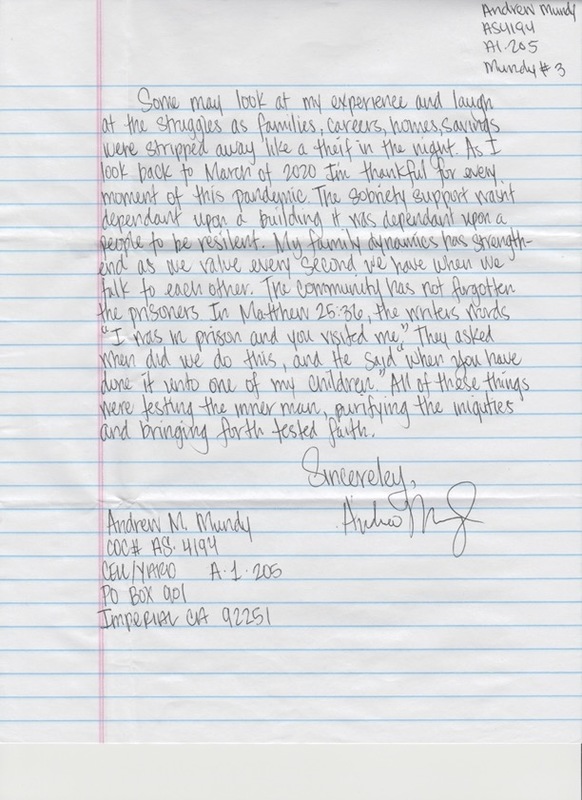 Andrew Mundy
AS4194
A1-205
Mundy # 3
Some may look at my experience and laugh
at the struggles as families, careers, homes, savings
were stripped away like a theif in the night. As I
look back to March of 2020 Iim thankful for every
moment of this pandemic. The sobriety support wasnt
dependant upon a building it was dependant upon a
people to be resilent. My family dynamics has strength-
end as we value every second we have when we
talk to each other. The community has not forgotten
the prisoners In Matthew 25:36, the writers words
"I was in prison and you visited me." They asked
when did we do this, and He said "when you have
done it unto one of my children." All of these things
were testing the inner man, purifying the iniquties
and bringing forth tested faith.
Sincereley,
Andrew M. Mundy
CDC# AS. 4194
CELL/YARD A.1.205
PO BOX 901
IMPERIAL CA 92251